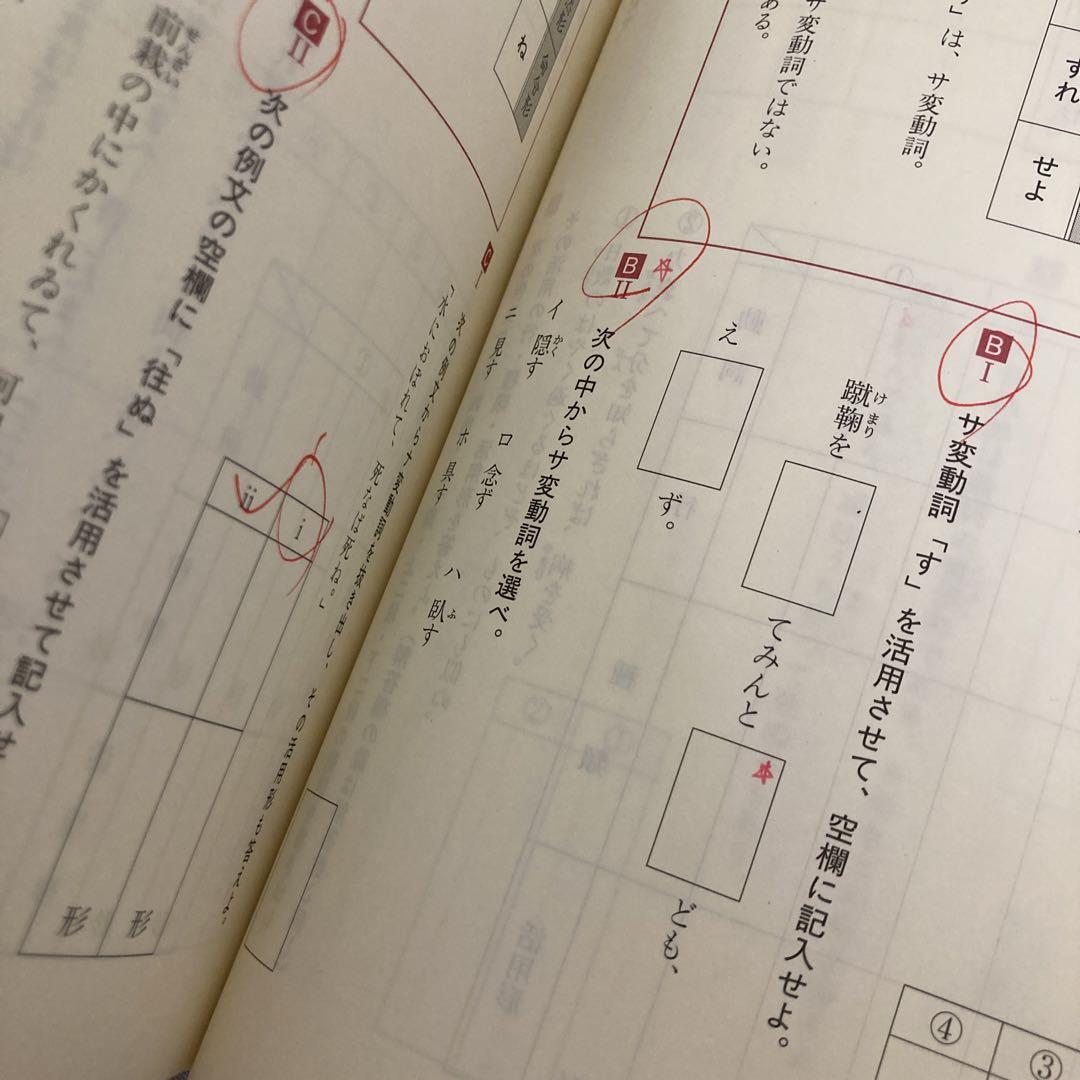 すれ
せよ
」は、サ変動詞。
サ変動詞ではない。
ある。
BⅠ
サ変動詞「す」を活用させて、空欄に記入せよ。
蹴鞠を
けまり
てみんと
ども、
え
ず。
④
③
BⅡ
次の中からサ変動詞を選べ。
イ 隠す
かく
ロ 念ず
ハ 臥す
ふ
ニ 見す
ホ 具す
ね
C
次の例文からナ変動詞を抜き出し、その活用形も答えよ。
「水におぼれて、死なば死ね。」
i
ii
形
形
CⅡ
次の例文の空欄に「往ぬ」を活用させて記入せ
前栽の中にかくれゐて、
せんざい